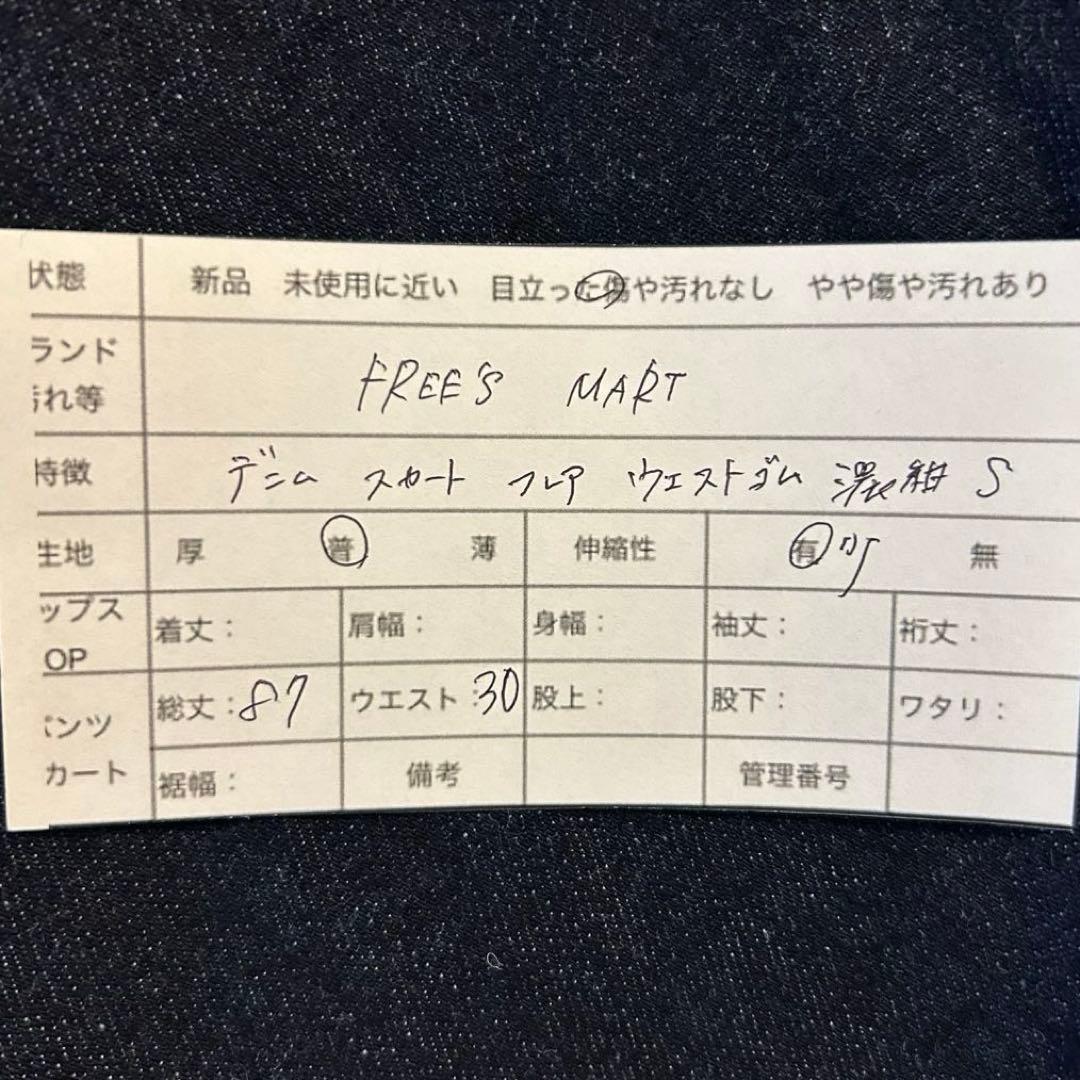 状態 新品 未使用に近い 目立った傷や汚れなし やや傷や汚れあり
ランド
汚れ等 FREE'S MART
特徴 デニム スカート フレア ウエストゴム 濃紺 S
生地 厚 普 薄 伸縮性 有 少 無
ップス
OP 着丈: 肩幅: 身幅: 袖丈: 裄丈:
総丈:87 ウエスト:30 股上: 股下: ワタリ:
ンツ
カート 裾幅: 備考 管理番号